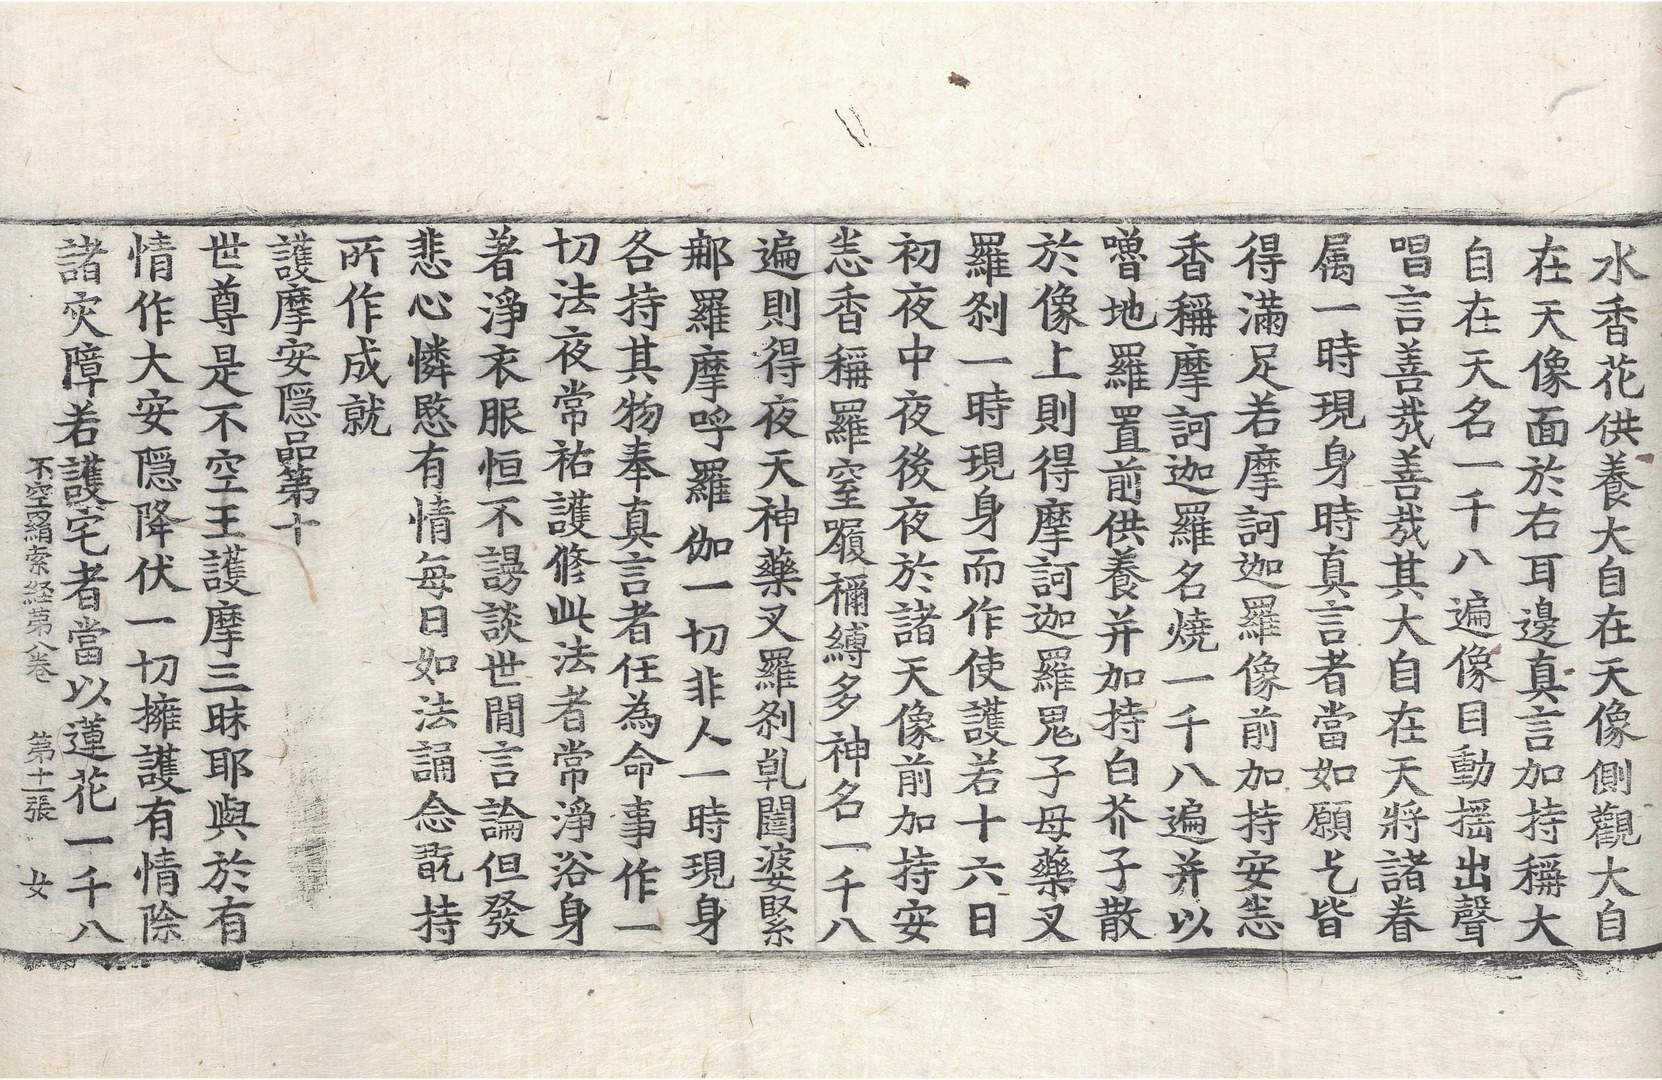 水香花供養大自在天像側觀大自
在天像面於右耳邊真言加持稱大
自在天名一千八遍像目動搖出聲
唱言善哉善哉其大自在天將諸眷
属一時現身時真言者當如願乞皆
得滿足若摩訶迦羅像前加持安悉
香稱摩訶迦羅名燒一千八遍并以
嚕地羅置前供養并加持白芥子散
於像上則得摩訶迦羅鬼子母藥叉
羅剎一時現身而作使護若十六日
初夜中夜後夜於諸天像前加持安
悉香稱羅窒𡳐禰縛多神名一千八
遍則得夜天神藥叉羅剎乹闥婆緊
那羅摩呼羅伽一切非人一時現身
各持其物奉真言者任為命事作一
切法夜常祐護修此法者常淨浴身
著淨衣服恒不謾談世間言論但發
悲心憐愍有情每日如法誦念翫持
所作成就
護摩安隠品第十
世尊是不空王護摩三昧耶與於有
情作大安隠降伏一切擁護有情除
諸灾障若護宅者當以蓮花一千八
不空羂索経第八卷 第十一張 女